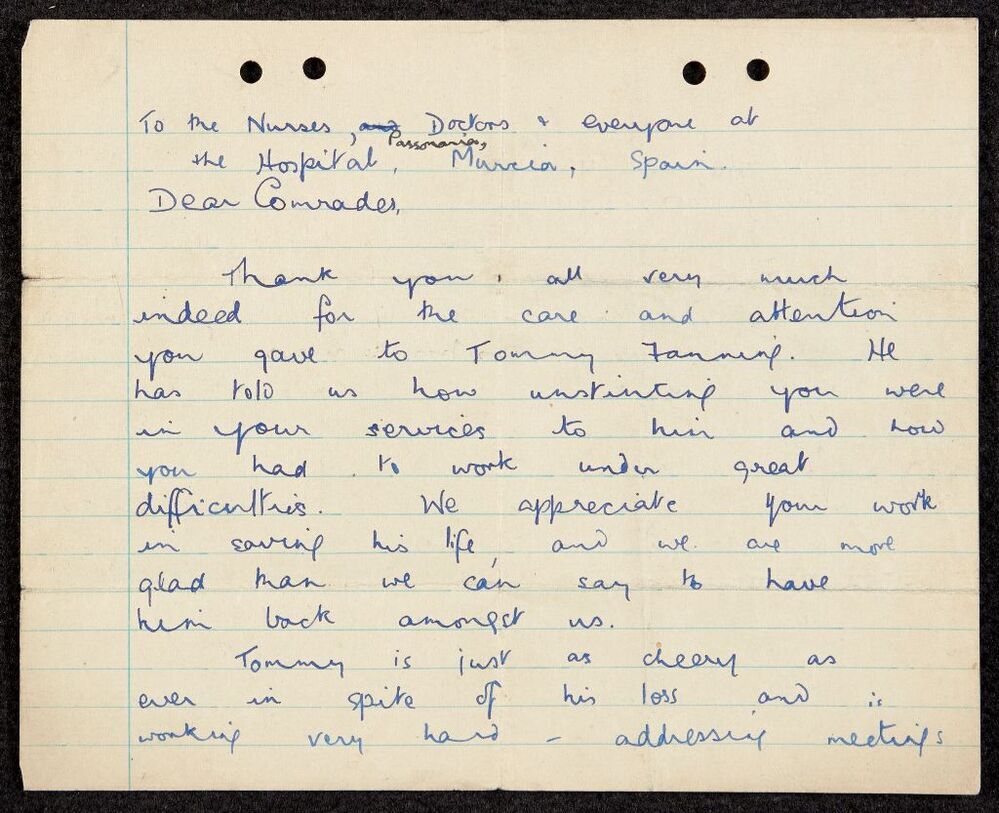 To the Nurses, and Doctors & everyone at
Passonaria,
the Hospital, Murcia, Spain.
Dear Comrades,
Thank you all very much
indeed for the care and attention
you gave to Tommy Fanning. He
has told us how unstinting you were
in your services to him and how
you had to work under great
difficulties. We appreciate your work
in saving his life, and we are more
glad than we can say to have
him back amongst us.
Tommy is just as cheery as
ever in spite of his loss and is
working very hard – addressing meetings